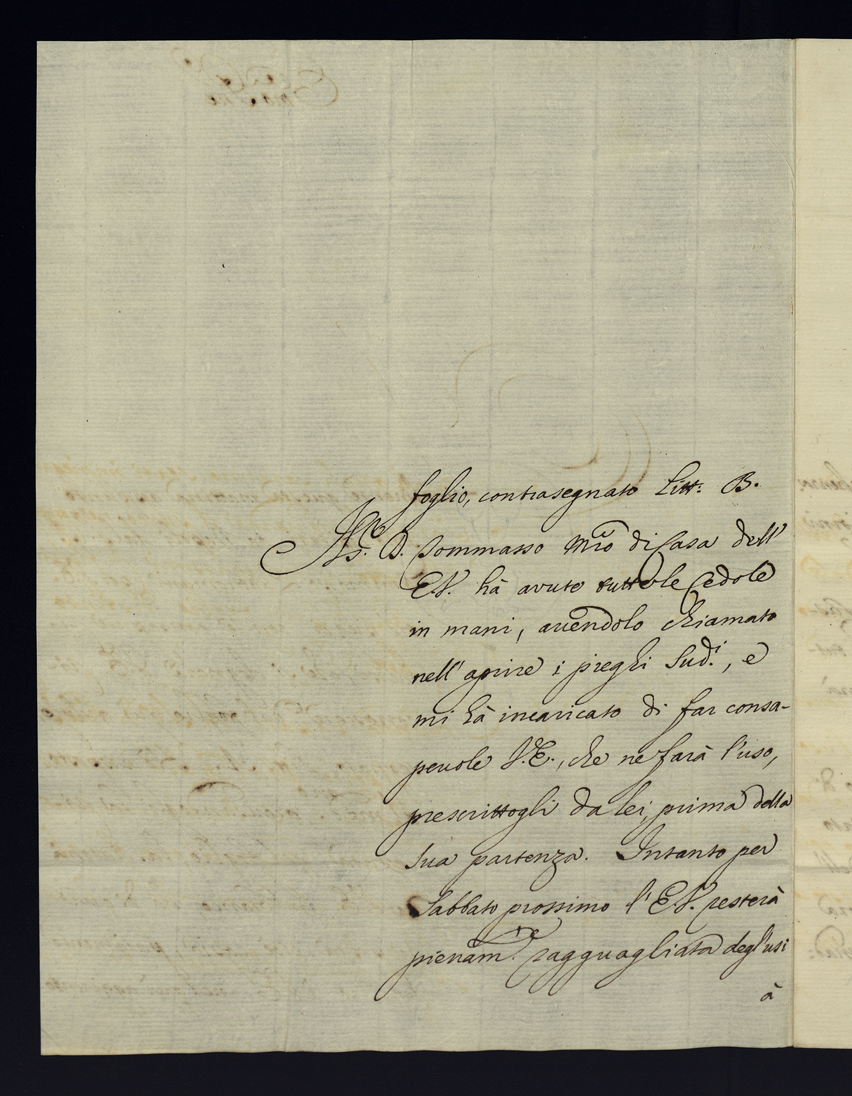 foglio, contrasegnato Litt: B.
D. Tommasso Mro di Casa dell'
E.V. hà avute tutte le Cedole
in mani, avendolo chiamato
nell'aprire i pieghi Sud.i, e
mi hà incaricato di far consa-
pevole V.E., che ne farà l'uso,
prescrittogli da lei prima della
sua partenza. Intanto per
Sabbato prossimo l'E.V. resterà
pienam.te ragguagliata degl'usi
à